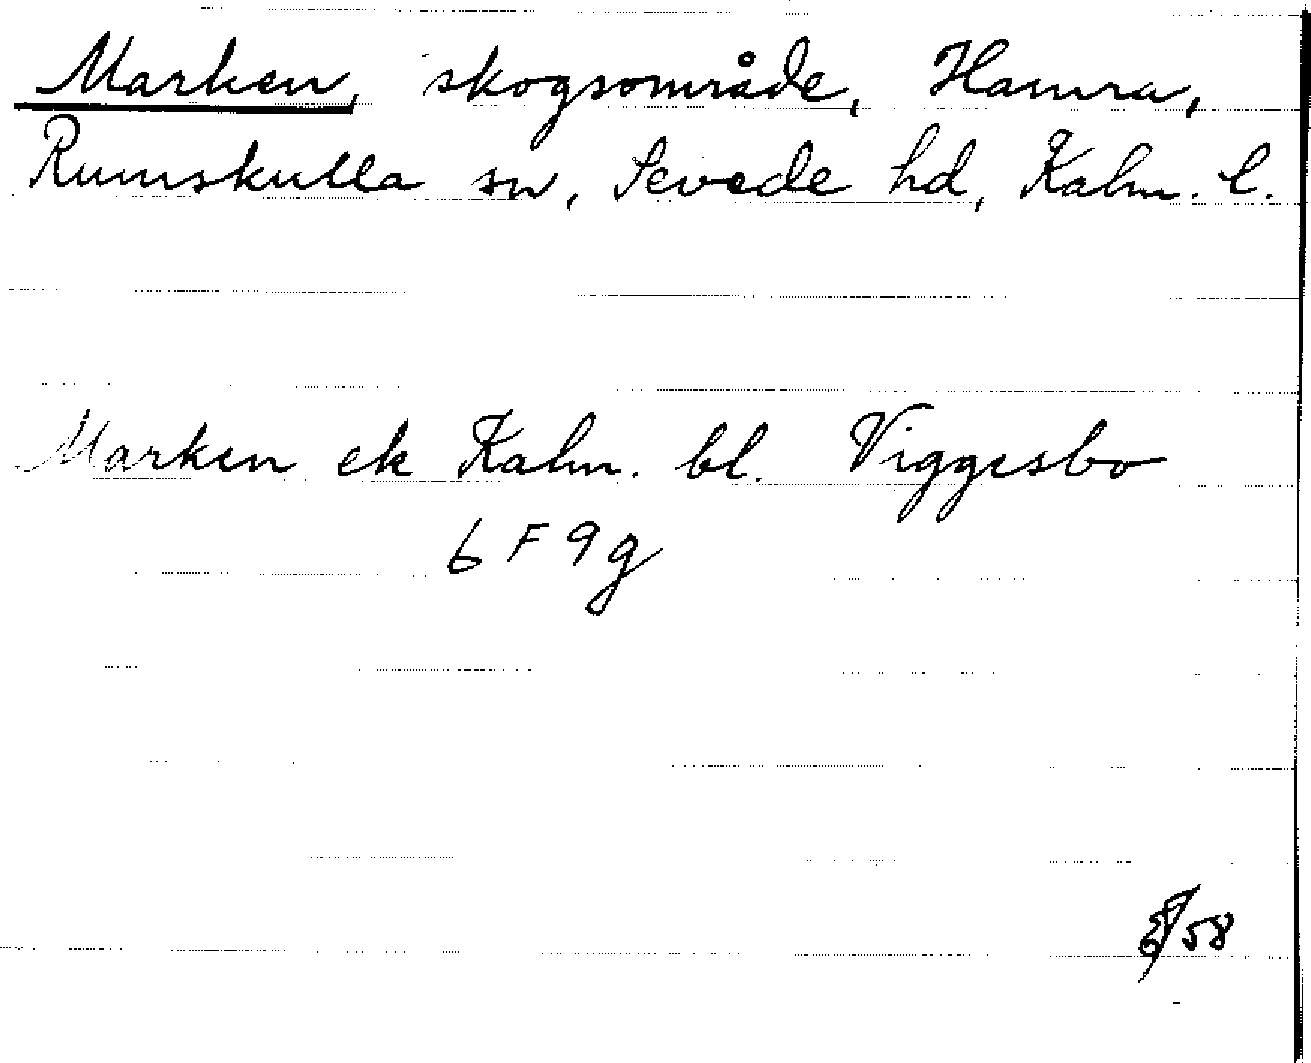 Marken, skogsområde, Hamra,
Rumskulla sn, Sevede hd, Kalm. l.
Marken ek Kalm. bl. Viggesbo
6 F 9 g
58